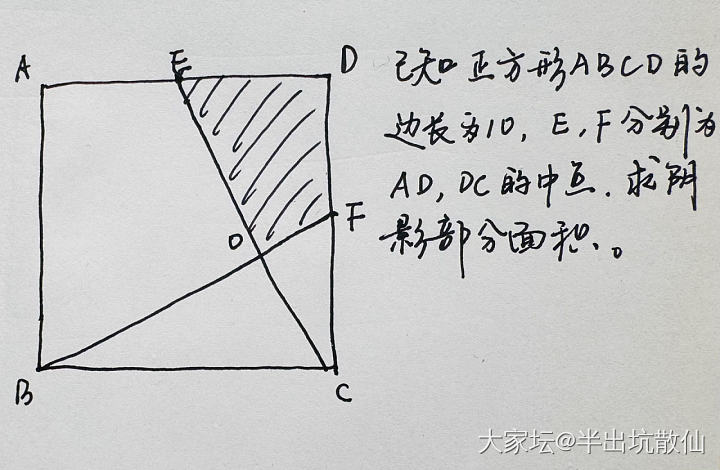 A
E
D
已知正方形ABCD的
边长为10,E,F分别为
AD,DC的中点.求阴
影部分面积。
F
O
B
C
大家坛@半出坑散仙